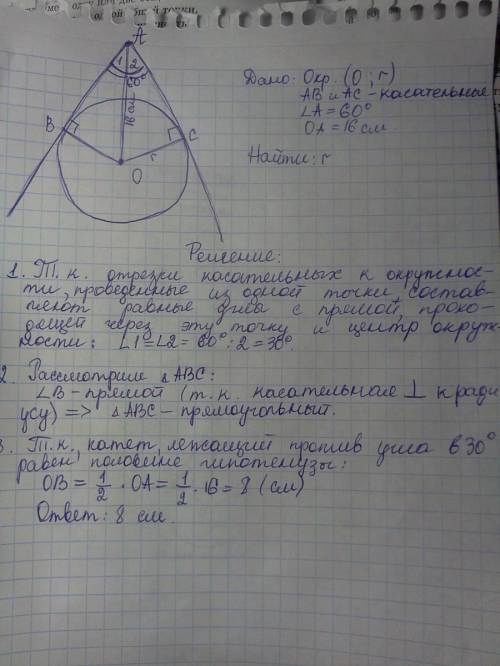 A
1 2
60°
16 см
B
C
r
O
Дано: Окр. (O; r)
AB и AC - касательные
∠A = 60°
OA = 16 см
Найти: r
Решение:
1. Т. к. отрезки касательных к окружнос-
ти, проведённые из одной точки, состав-
ляют равные углы с прямой, прохо-
дящей через эту точку и центр окруж-
ности: ∠1 = ∠2 = 60° : 2 = 30°.
2. Рассмотрим △ABC:
∠B - прямой (т. к. касательная ⊥ к ради
усу) => △ABC - прямоугольный.
3. Т. к. катет, лежащий против угла в 30°
равен половине гипотенузы:
OB = 1/2 · OA = 1/2 · 16 = 8 (см)
Ответ: 8 см.